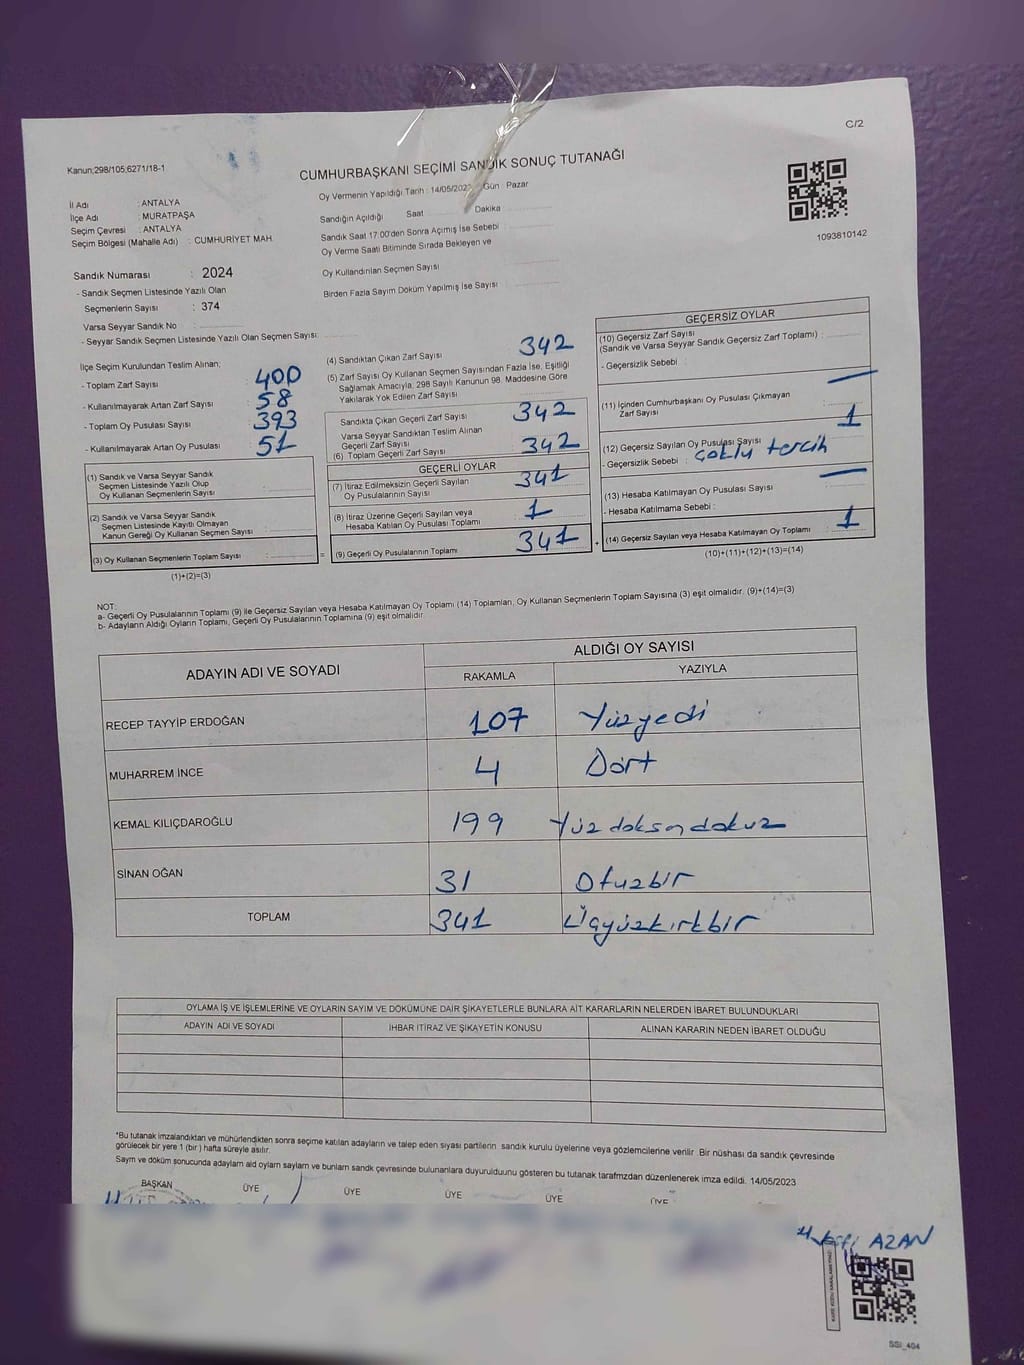 C/2
Kanun;298/105;6271/18-1
CUMHURBAŞKANI SEÇİMİ SANDIK SONUÇ TUTANAĞI
İl Adı : ANTALYA
İlçe Adı : MURATPAŞA
Seçim Çevresi : ANTALYA
Seçim Bölgesi (Mahalle Adı) : CUMHURİYET MAH.
Oy Vermenin Yapıldığı Tarih : 14/05/2023 Gün : Pazar
Sandığın Açıldığı Saat Dakika
Sandık Saat 17:00'den Sonra Açımış İse Sebebi :
Oy Verme Saati Bitiminde Sırada Bekleyen ve
Oy Kullandırılan Seçmen Sayısı
Birden Fazla Sayım Döküm Yapılmış İse Sayısı :
1093810142
Sandık Numarası : 2024
- Sandık Seçmen Listesinde Yazılı Olan
Seçmenlerin Sayısı : 374
Varsa Seyyar Sandık No :
- Seyyar Sandık Seçmen Listesinde Yazılı Olan Seçmen Sayısı:
İlçe Seçim Kurulundan Teslim Alınan;
- Toplam Zarf Sayısı : 400
- Kullanılmayarak Artan Zarf Sayısı : 58
- Toplam Oy Pusulası Sayısı : 393
- Kullanılmayarak Artan Oy Pusulası : 51
(1) Sandık ve Varsa Seyyar Sandık
Seçmen Listesinde Yazılı Olup
Oy Kullanan Seçmenlerin Sayısı :
(2) Sandık ve Varsa Seyyar Sandık
Seçmen Listesinde Kayıtlı Olmayan
Kanun Gereği Oy Kullanan Seçmen Sayısı :
(3) Oy Kullanan Seçmenlerin Toplam Sayısı :
(1)+(2)=(3)
(4) Sandıktan Çıkan Zarf Sayısı 342
(5) Zarf Sayısı Oy Kullanan Seçmen Sayısından Fazla İse, Eşitliği
Sağlamak Amacıyla, 298 Sayılı Kanunun 98. Maddesine Göre
Yakılarak Yok Edilen Zarf Sayısı
Sandıkta Çıkan Geçerli Zarf Sayısı 342
Varsa Seyyar Sandıktan Teslim Alınan
Geçerli Zarf Sayısı
(6) Toplam Geçerli Zarf Sayısı 342
GEÇERLİ OYLAR
(7) İtiraz Edilmeksizin Geçerli Sayılan
Oy Pusulalarının Sayısı 341
(8) İtiraz Üzerine Geçerli Sayılan veya
Hesaba Katılan Oy Pusulası Toplamı 1
= (9) Geçerli Oy Pusulalarının Toplamı 341 +
GEÇERSİZ OYLAR
(10) Geçersiz Zarf Sayısı
(Sandık ve Varsa Seyyar Sandık Geçersiz Zarf Toplamı) :
- Geçersizlik Sebebi :
(11) İçinden Cumhurbaşkanı Oy Pusulası Çıkmayan
Zarf Sayısı
1
(12) Geçersiz Sayılan Oy Pusulası Sayısı
- Geçersizlik Sebebi : çoklu tercih
(13) Hesaba Katılmayan Oy Pusulası Sayısı
- Hesaba Katılmama Sebebi :
(14) Geçersiz Sayılan veya Hesaba Katılmayan Oy Toplamı 1
(10)+(11)+(12)+(13)=(14)
NOT:
a- Geçerli Oy Pusulalarının Toplamı (9) ile Geçersiz Sayılan veya Hesaba Katılmayan Oy Toplamı (14) Toplamları, Oy Kullanan Seçmenlerin Toplam Sayısına (3) eşit olmalıdır. (9)+(14)=(3)
b- Adayların Aldığı Oyların Toplamı, Geçerli Oy Pusulalarının Toplamına (9) eşit olmalıdır.
ADAYIN ADI VE SOYADI ALDIĞI OY SAYISI
RAKAMLA YAZIYLA
RECEP TAYYİP ERDOĞAN 107 Yüzyedi
MUHARREM İNCE 4 Dört
KEMAL KILIÇDAROĞLU 199 Yüzdoksandokuz
SİNAN OĞAN 31 Otuzbir
TOPLAM 341 Üçyüzkırkbir
OYLAMA İŞ VE İŞLEMLERİNE VE OYLARIN SAYIM VE DÖKÜMÜNE DAİR ŞİKAYETLERLE BUNLARA AİT KARARLARIN NELERDEN İBARET BULUNDUKLARI
ADAYIN ADI VE SOYADI İHBAR İTİRAZ VE ŞİKAYETİN KONUSU ALINAN KARARIN NEDEN İBARET OLDUĞU
*Bu tutanak imzalandıktan ve mühürlendikten sonra seçime katılan adayların ve talep eden siyasi partilerin sandık kurulu üyelerine veya gözlemcilerine verilir. Bir nüshası da sandık çevresinde
görülecek bir yere 1 (bir) hafta süreyle asılır.
Sayım ve döküm sonucunda adayların aldıkları oyların sayıları ve bunların sandık çevresinde bulunanlara duyurulduğunu gösteren bu tutanak tarafımızdan düzenlenerek imza edildi. 14/05/2023
BAŞKAN ÜYE ÜYE ÜYE ÜYE ÜYE
AZAN
SSI_404